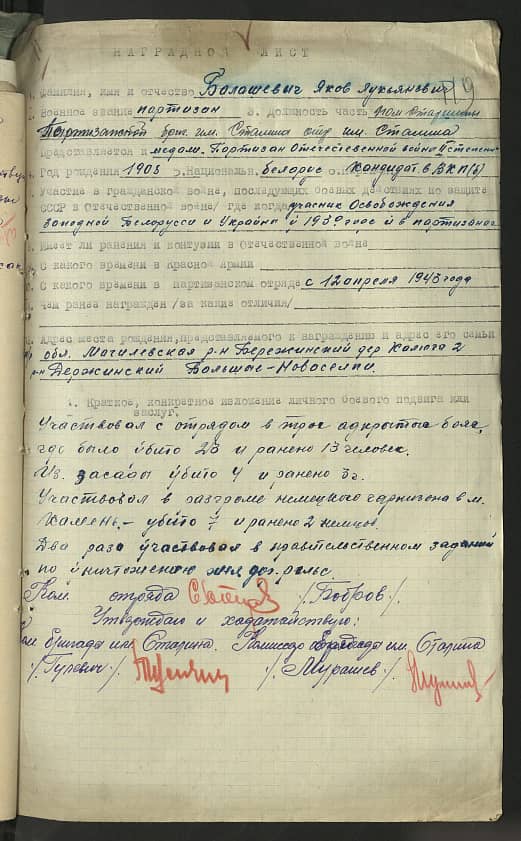 НАГРАДНОЙ ЛИСТ
119
Фамилия, имя и отчество Балашевич Яков Лукьянович
2. Военное звание партизан 3. Должность часть пом. Старшины
Партизанской бриг. им. Сталина отр. им. Сталина
Представляется к медом. Партизан Отечественной войны II степени
Год рождения 1903 5. Национальн. белорус 6. кандидат в ВКП(б)
Участие в гражданской войне, последующих боевых действиях по защите
СССР в Отечественной войне/ где когда учасник Освобождения
западной Белорусси и Украйны и 1939 годе и в партизанах
Имеет ли ранения и контузии в Отечественной войне
С какого времени в Красной Армии
С какого времени в партизанском отряде с 12 апреля 1943 года
Чем ранее награжден /за какие отличия/
Адрес места рождения, представляемого к награждению и адрес его семьи
обл. Магилевская р-н Бережинский дер Калюга 2
р-н Держинский Большае-Новоселки.
1. Краткое, конкретное изложение личного боевого подвига или
заслуг.
Участвовал с отрядом в трох адкрытых боях,
где было убито 23 и ранено 13 человек.
Из засады убито 4 и ранено 3х.
Участвовал в разгроме немецкого гарнизона в м.
Камень, - убито 7 и ранено 2 немцов.
Два раза участвовал в правтельственном заданий
по уничтожению жел. дор. рельс.
Ком. отряда /Бобров/.
Утверждаю и ходатайствую:
Ком бригада им Сталина. Комиссар бригада им Сталина
/Гулевич/. /Мурашев./